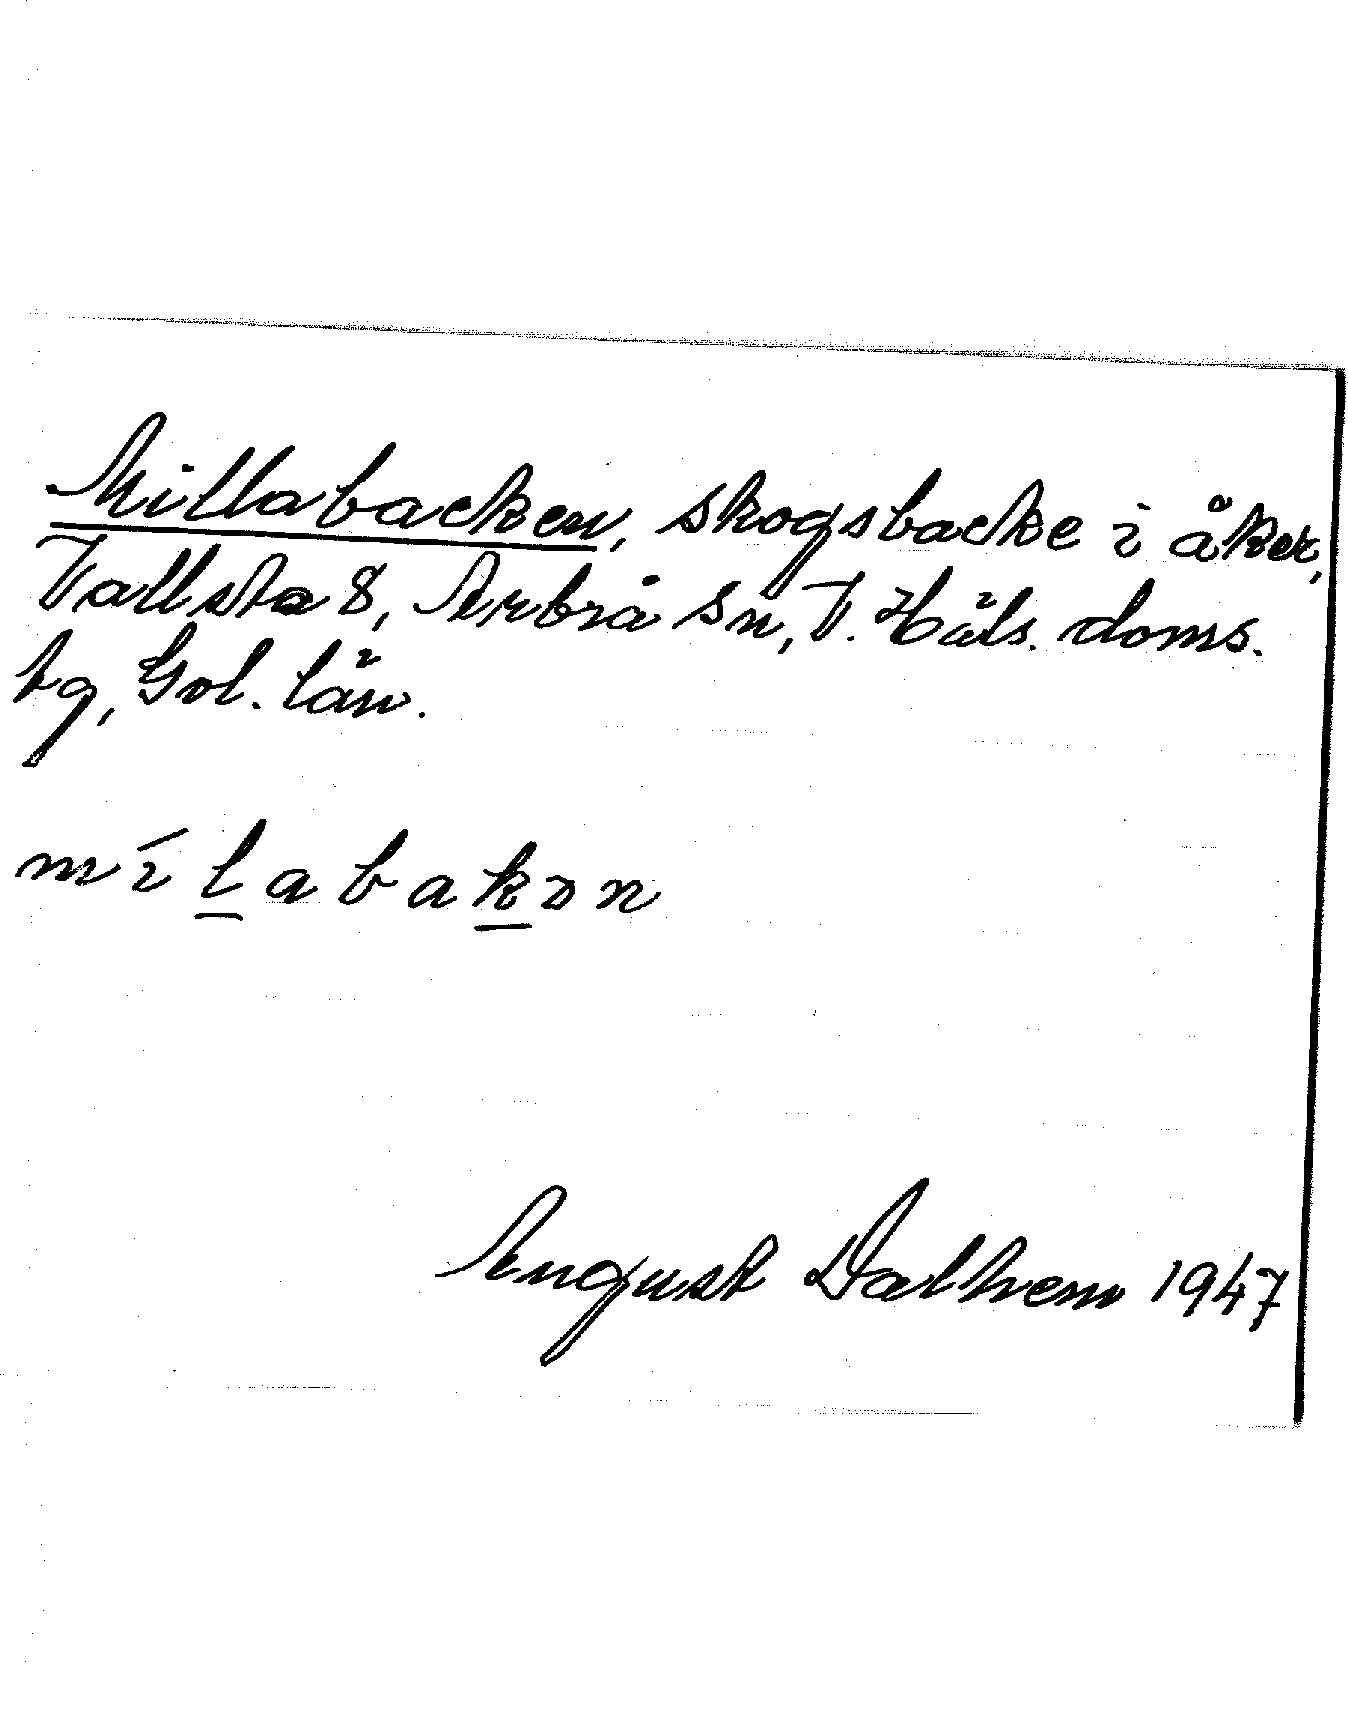 Millabacken, skogsbacke i åker,
Vallsta 8, Arbrå sn, V. Häls. doms.
tg, Gvl. län.
mílabakən
August Dalhem 1947